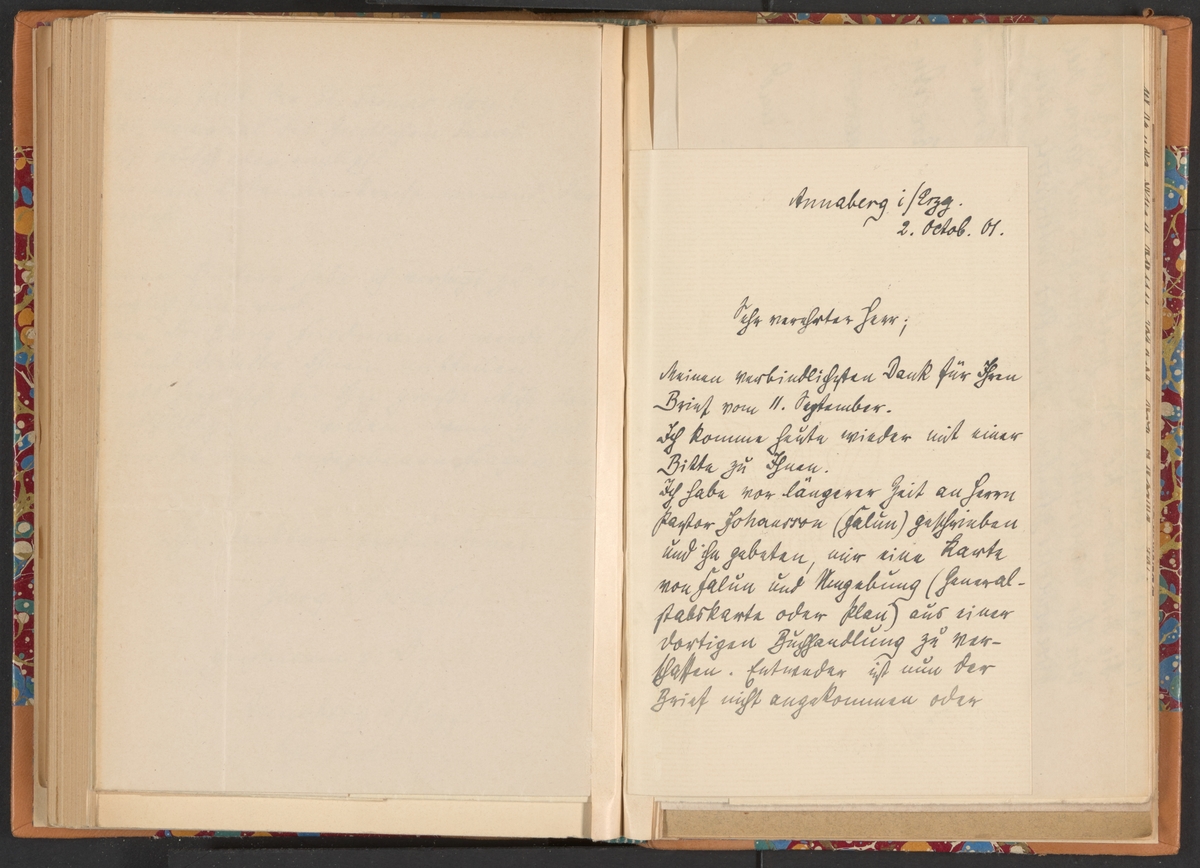 Annaberg i/Erzg.
2. Octob. 01.
Sehr verehrter Herr;
Meinen verbindlichsten Dank für Ihren
Brief vom 11. September.
Ich komme heute wieder mit einer
Bitte zu Ihnen.
Ich habe vor längerer Zeit an Herrn
Pastor Johansson (Falun) geschrieben
und ihn gebeten, mir eine Karte
von Falun und Umgebung (General-
stabskarte oder Plan) aus einer
dortigen Buchhandlung zu ver-
schaffen. Entweder ist nun der
Brief nicht angekommen oder